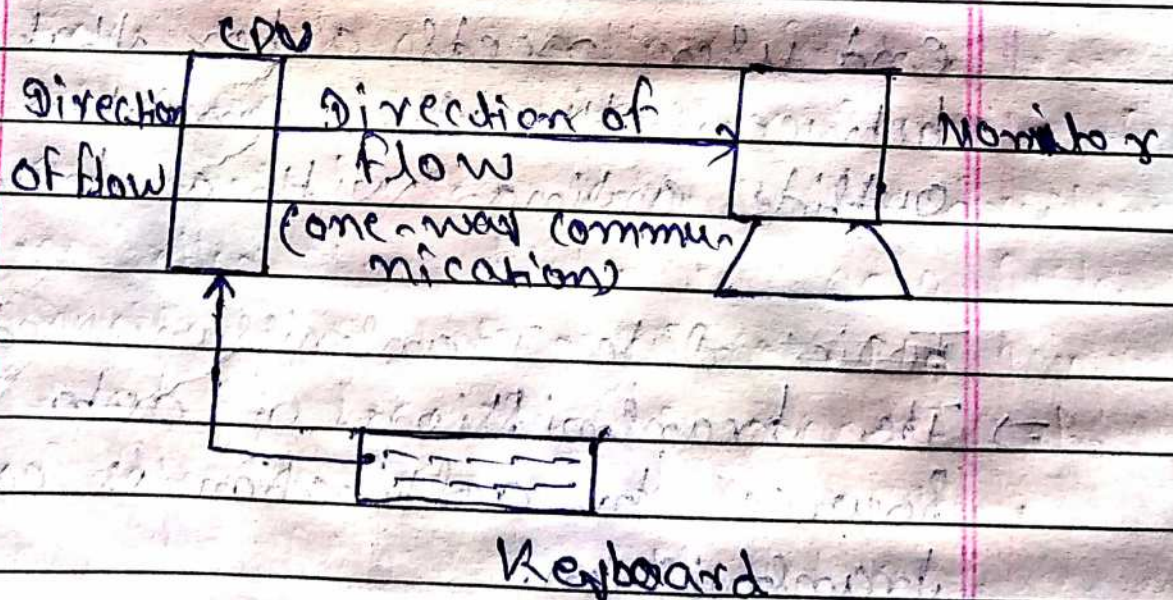 CPU
Direction
of flow
Direction of
flow
(one-way commu-
nication)
Monitor
Keyboard